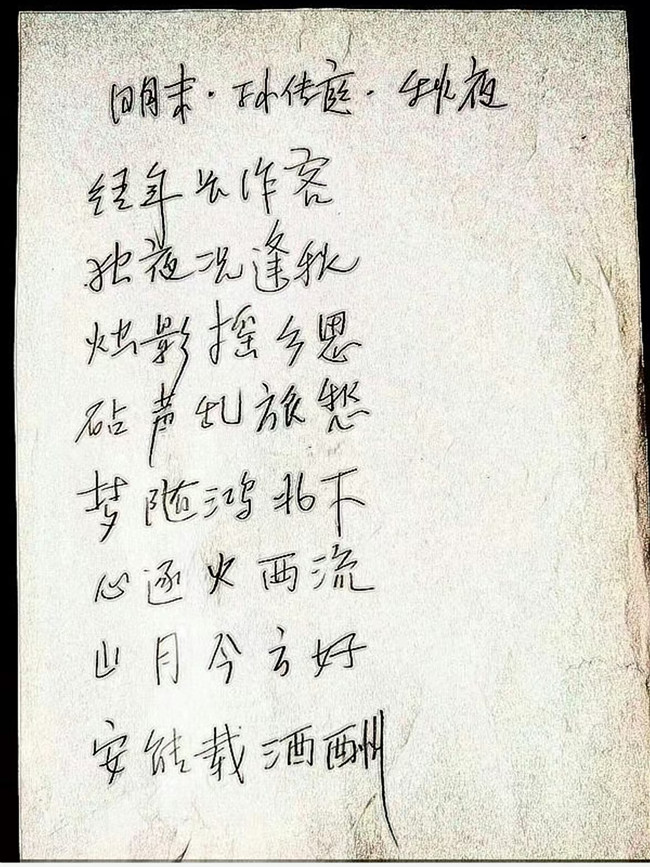 明末·孙传庭·秋夜
经年长作客
独夜况逢秋
烛影摇乡思
砧声乱旅愁
梦随鸿北下
心逐火西流
山月今方好
安能载酒酬